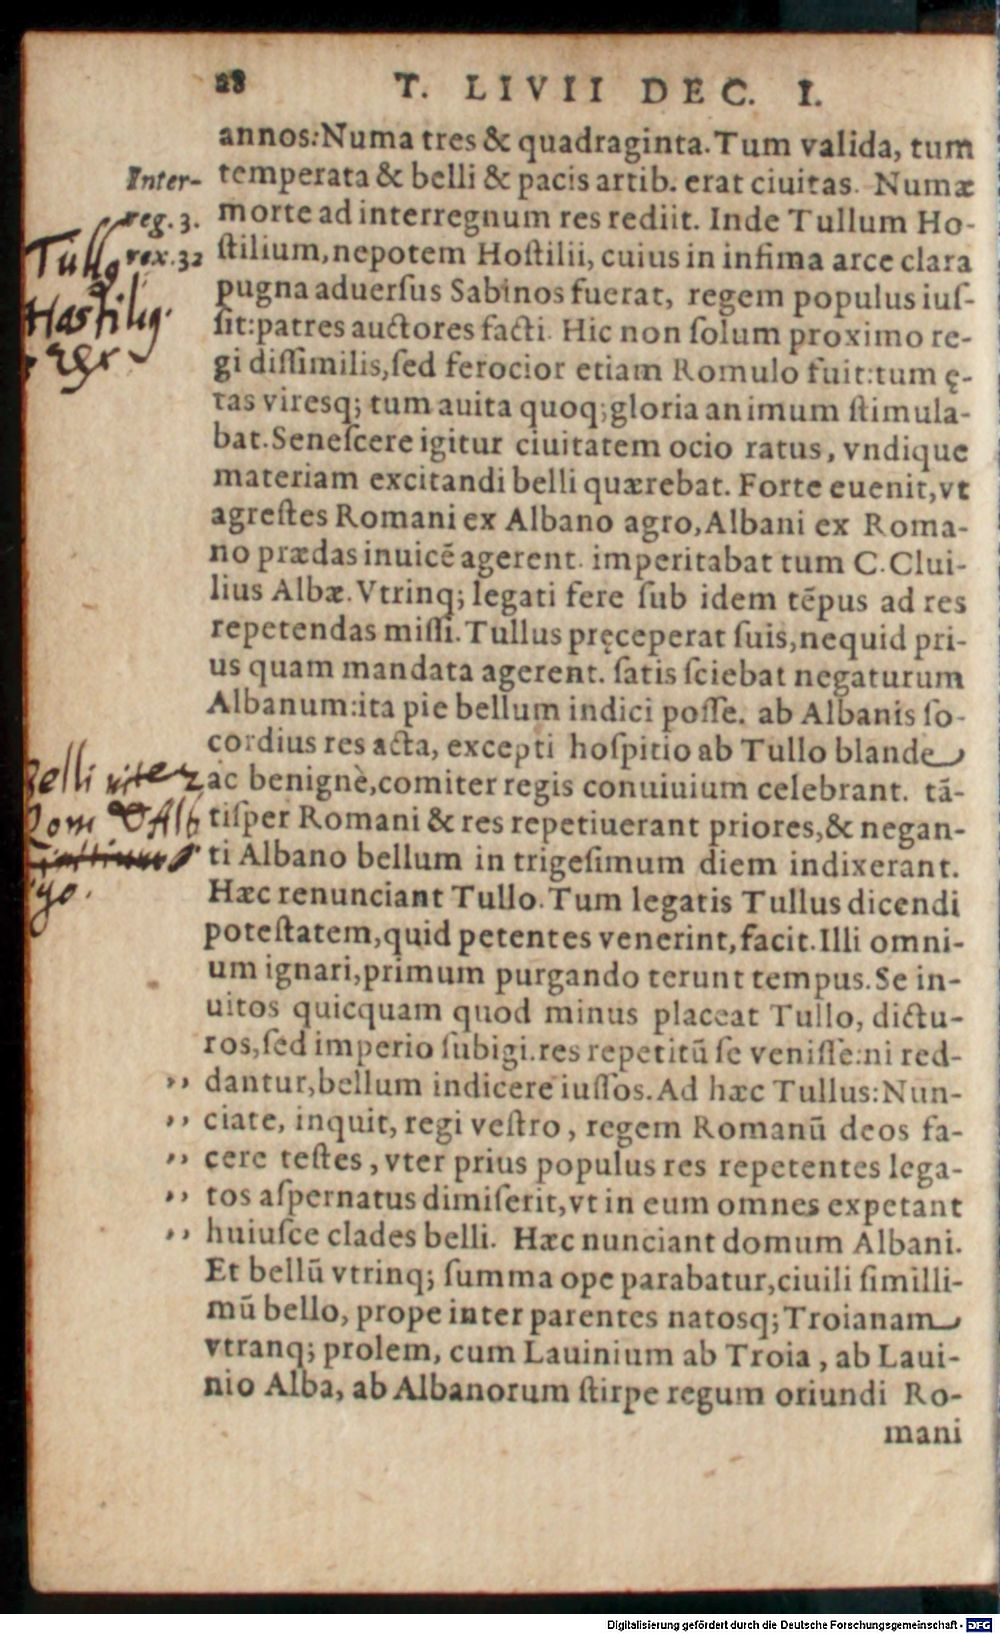 28 T. LIVII DEC. I.
annos:Numa tres & quadraginta. Tum valida, tum
Inter- temperata & belli & pacis artib. erat ciuitas. Numæ
reg. 3. morte ad interregnum res rediit. Inde Tullum Ho-
rex. 32 ſtilium, nepotem Hoſtilii, cuius in infima arce clara
Tullꝰ
Hostiliꝰ
rex
pugna aduerſus Sabinos fuerat, regem populus iuſ-
ſit:patres auctores facti. Hic non ſolum proximo re-
gi diſſimilis, ſed ferocior etiam Romulo fuit:tum ę-
tas viresq; tum auita quoq; gloria animum ſtimula-
bat. Seneſcere igitur ciuitatem ocio ratus, vndique
materiam excitandi belli quærebat. Forte euenit, vt
agreſtes Romani ex Albano agro, Albani ex Roma-
no prædas inuicē agerent. imperitabat tum C. Clui-
lius Albæ. Vtrinq; legati fere ſub idem tēpus ad res
repetendas miſſi. Tullus pręceperat ſuis, nequid pri-
us quam mandata agerent. ſatis ſciebat negaturum
Albanum:ita pie bellum indici poſſe. ab Albanis ſo-
cordius res acta, excepti hoſpitio ab Tullo blande
Belli inter
ac benignè, comiter regis conuiuium celebrant. tā-
Rom & Alb
tiſper Romani & res repetiuerant priores, & negan-
ti Albano bellum in trigeſimum diem indixerant.
Hæc renunciant Tullo. Tum legatis Tullus dicendi
poteſtatem, quid petentes venerint, facit. Illi omni-
um ignari, primum purgando terunt tempus. Se in-
uitos quicquam quod minus placeat Tullo, dictu-
ros, ſed imperio ſubigi. res repetitū ſe veniſſe:ni red-
,, dantur, bellum indicere iuſſos. Ad hæc Tullus: Nun-
,, ciate, inquit, regi veſtro, regem Romanū deos fa-
,, cere teſtes, vter prius populus res repetentes lega-
,, tos aſpernatus dimiſerit, vt in eum omnes expetant
,, huiuſce clades belli. Hæc nunciant domum Albani.
Et bellū vtrinq; ſumma ope parabatur, ciuili ſimilli-
mū bello, prope inter parentes natosq; Troianam
vtranq; prolem, cum Lauinium ab Troia, ab Laui-
nio Alba, ab Albanorum ſtirpe regum oriundi Ro-
mani
Digitalisierung gefördert durch die Deutsche Forschungsgemeinschaft - DFG